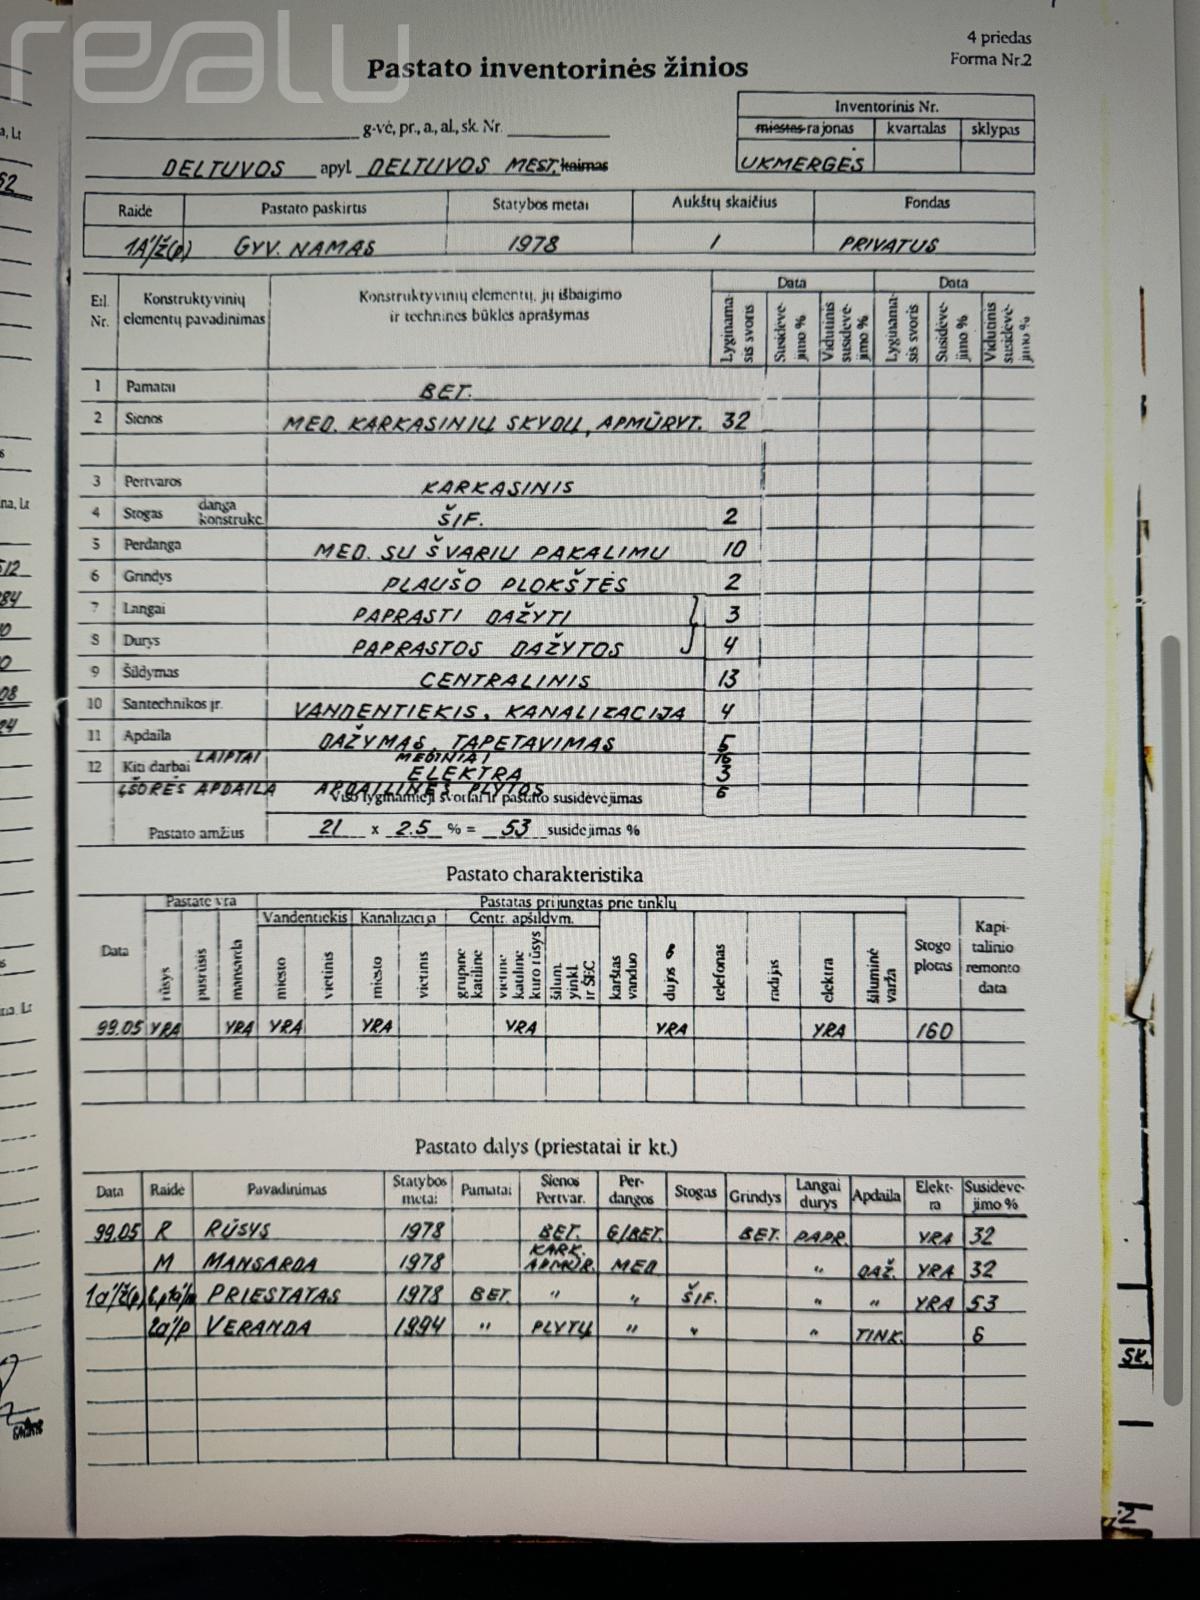 realu
4 priedas
Forma Nr.2
Pastato inventorinės žinios
Inventorinis Nr.
miestas rajonas kvartalas sklypas
UKMERGĖS
g-vė, pr., a., al., sk. Nr.
DELTUVOS apyl. DELTUVOS MEST. kaimas
Raidė Pastato paskirtis Statybos metai Aukštų skaičius Fondas
1A'/ž(p) GYV. NAMAS 1978 1 PRIVATUS
Eil. Nr. Konstruktyvinių elementų pavadinimas Konstruktyvinių elementų, jų išbaigimo ir techninės būklės aprašymas Data Data
Lyginamasis svoris Susidėvėjimo % Vidutinis susidėvėjimo % Lyginamasis svoris Susidėvėjimo % Vidutinis susidėvėjimo %
1 Pamatai BET.
2 Sienos MED. KARKASINIŲ SKYDŲ, APMŪRYT. 32
3 Pertvaros KARKASINIS
4 Stogas danga konstrukc. ŠIF. 2
5 Perdanga MED. SU ŠVARIU PAKALIMU 10
6 Grindys PLAUŠO PLOKŠTĖS 2
7 Langai PAPRASTI DAŽYTI 3
8 Durys PAPRASTOS DAŽYTOS 4
9 Šildymas CENTRALINIS 13
10 Santechnikos įr. VANDENTIEKIS, KANALIZACIJA 4
11 Apdaila DAŽYMAS, TAPETAVIMAS 5
LAIPTAI MEDINIAI 16
12 Kiti darbai ELEKTRA 3
IŠORĖS APDAILA APDAILINĖS PLYTOS 6
Viso lyginamieji svoriai ir pastato susidėvėjimas
Pastato amžius 21 x 2.5 % = 53 susidėjimas %
Pastato charakteristika
Pastate yra Pastatas prijungtas prie tinklų
Vandentiekis Kanalizacija Centr. apšildym.
Data rūsys pusrūsis mansarda miesto vietinis miesto vietinis grupinė katilinė vietinė katilinė kuro rūsys šilum. tinkl. ir ŠEC karštas vanduo dujos telefonas radijas elektra šiluminė varža Stogo plotas Kapitalinio remonto data
99.05 YRA YRA YRA YRA YRA YRA YRA 160
Pastato dalys (priestatai ir kt.)
Data Raidė Pavadinimas Statybos metai Pamatai Sienos Pertvar. Perdangos Stogas Grindys Langai durys Apdaila Elektra Susidėvėjimo %
99.05 R RŪSYS 1978 BET. G/BET. BET. PAPR. YRA 32
M MANSARDA 1978 KARK. APMŪR. MED. " DAŽ. YRA 32
PRIESTATAS 1978 BET. " " ŠIF. " " YRA 53
2a'/p VERANDA 1994 " PLYTŲ " " " TINK. 6